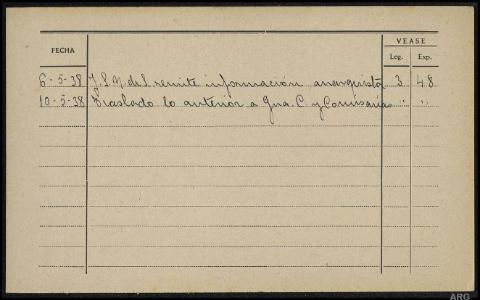 VEASE
FECHA
Leg. Exp.
6-5-38 J.S.M. del S. remite información anarquista 3 48
10-5-38 Traslado lo anterior a Gna. C. y Comisaria " "
ARG